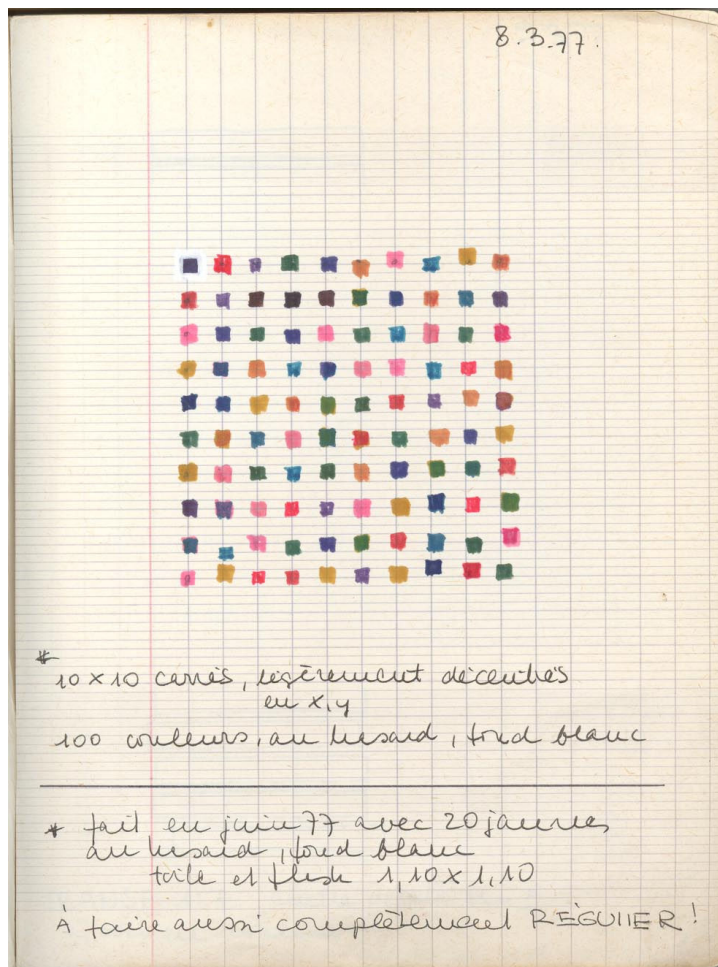 8.3.77.
* 10 x 10 carrés, légèrement décentrés
en x,y
100 couleurs, au hasard, fond blanc
* fait en juin 77 avec 20 jaunes
au hasard, fond blanc
toile et flash 1,10 x 1,10
À faire aussi complètement RÉGULIER!